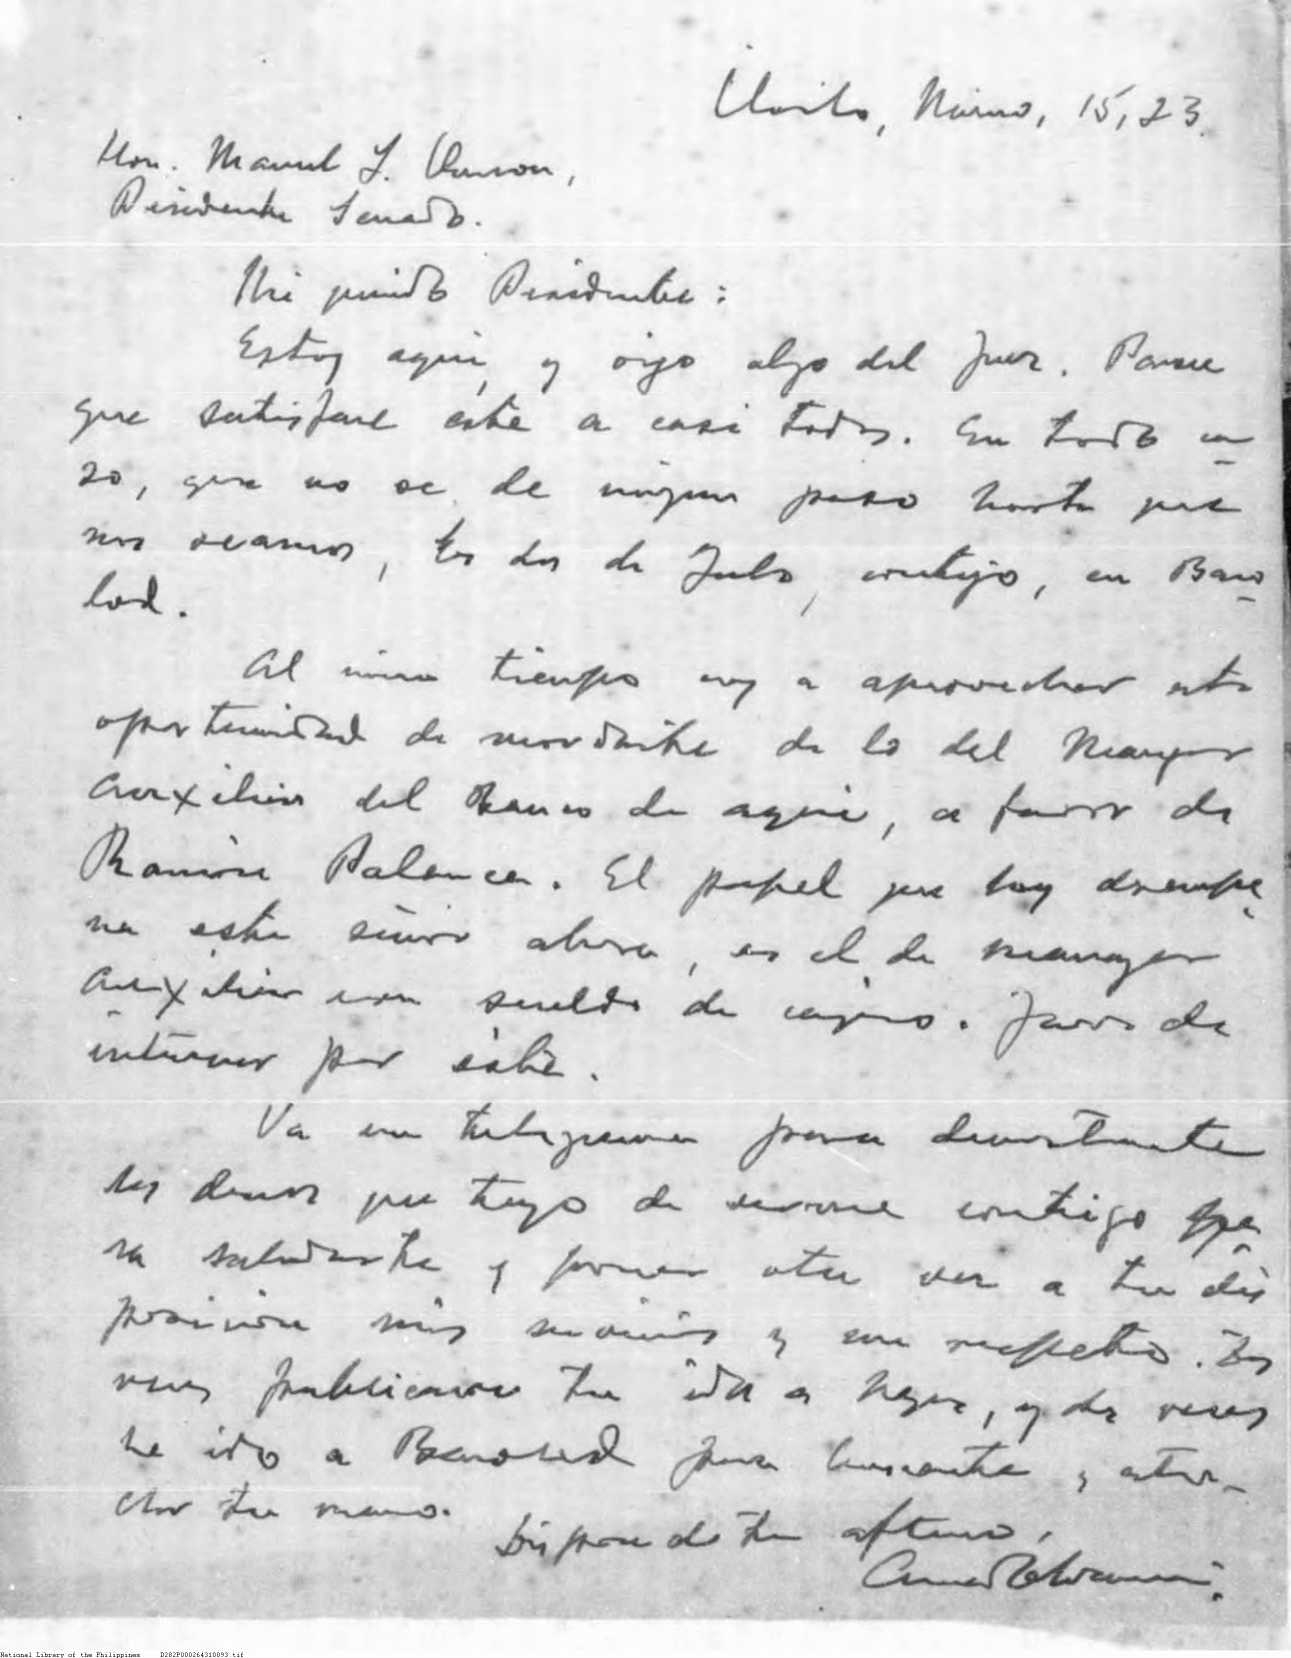 Iloilo, 15, 23.
Hon. Manuel L. Quezon,
Presidente Senado.
Mi querido Presidente:
Estoy aqui, y oigo algo del Juez. Parece
que satisface este a casi todos. En todo ca-
so, que no se de ningun paso hasta que
nos veamos, los dos de Julio, contigo, en Baco-
lod.
Al mismo tiempo voy a aprovechar esta
oportunidad de recordarte de lo del Manager
Auxiliar del Banco de aqui, a favor de
Ramon Palanca. El papel que hoy desempe-
ña este señor ahora, es el de manager
Auxiliar con sueldo de cajero. Favor de
interesar por este.
Va un telegrama para demostrarte
los deseos que tengo de verme contigo pa-
ra saludarte y poner otra vez a tu dis
posicion mis servicios y con respeto. Dos
veces publicaron tu ida a Negros, y dos veces
he ido a Bacolod para buscarte y estre-
char tu mano.
Dispone de tu afmo,